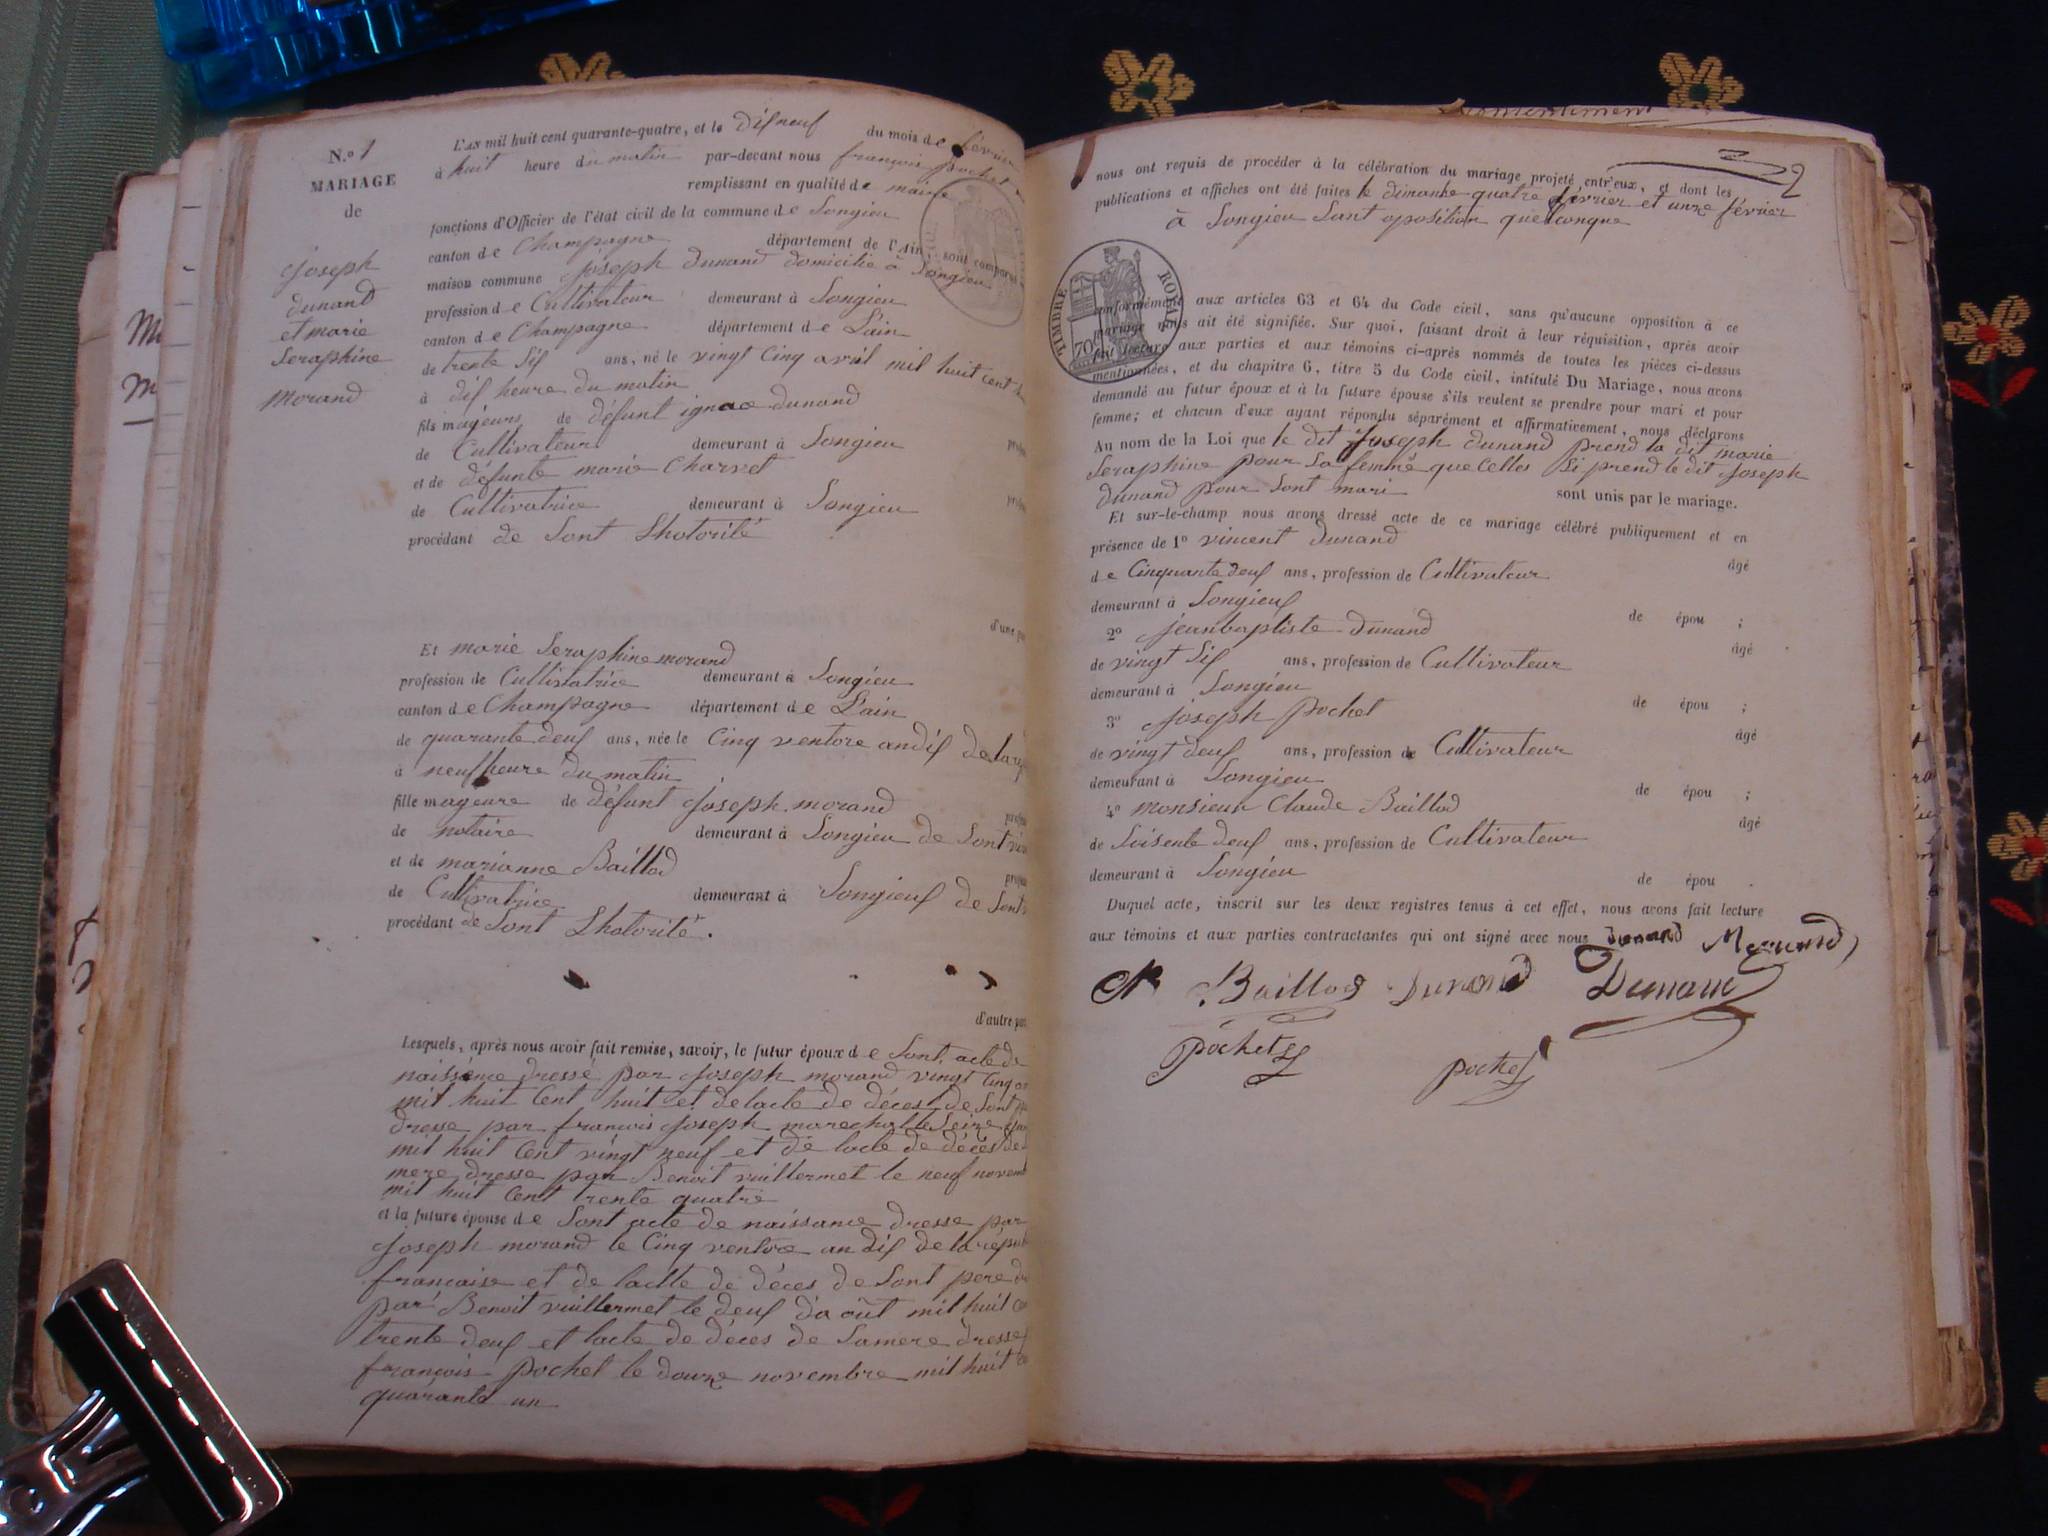 N.º 1
MARIAGE
de
joseph
dunand
et marie
Seraphine
morand
L'AN mil huit cent quarante-quatre, et le dif neuf du mois de fevrier
à huit heure du matin par-devant nous françois pochet
remplissant en qualité de maire
fonctions d'Officier de l'état civil de la commune de Songieu
canton de Champagne département de l'Ain, sont comparus
maison commune joseph dunand domicilié à Songieu
profession de Cultivateur demeurant à Songieu
canton de Champagne département de L'ain
de trente Sif ans, né le vingt Cinq avril mil huit cent
à dif heure du matin
fils majeurs de défunt ignace dunand
de Cultivateur demeurant à Songieu
et de défunte marie Charvet
de Cultivatrice demeurant à Songieu
procédant de Sont Lhotorité
d'une
Et marie Seraphine morand
profession de Cultivatrice demeurant à Songieu
canton de Champagne département de L'ain
de quarante deuf ans, née le Cinq ventore an dif de la
à neuf heure du matin
fille mageure de défunt joseph morand
de notaire demeurant à Songieu de Sont
et de marianne Baillod
de Cultivatrice demeurant à Songieuf de Sont
procédant de Sont Lhotorité.
d'autre
Lesquels, après nous avoir fait remise, savoir, le futur époux de Sont acte de
naissance dressé par joseph morand vingt Cinq
mil huit Cent huit et de lacte de déces de Sont
dresse par francois joseph marechal le Seize
mil huit Cent vingt neuf et de lacte de déces de
mere dresse par Benoit vuillermet le neuf novem
mil huit Cent trente quatre
et la future épouse de Sont acte de naissance dresse par
joseph morand le Cinq ventose an dif de la répu
francaise et de lactte de déces de Sont pere
par Benoit vuillermet le deuf da oût mil huit
trente deuf et lacte de déces de Samere dresse
françois pochet le douze novembre mil huit
quarante un
2
nous ont requis de procéder à la célébration du mariage projeté entr'eux, et dont les
publications et affiches ont été faites le dimanhe quatre février et unze février
à Songieu Sant oposition quelconque
TIMBRE ROYAL
70
conformément aux articles 63 et 64 du Code civil, sans qu'aucune opposition à ce
mariage nous ait été signifiée. Sur quoi, faisant droit à leur réquisition, après avoir
fait lecture aux parties et aux témoins ci-après nommés de toutes les pièces ci-dessus
mentionnées, et du chapitre 6, titre 5 du Code civil, intitulé Du Mariage, nous avons
demandé au futur époux et à la future épouse s'ils veulent se prendre pour mari et pour
femme; et chacun d'eux ayant répondu séparément et affirmativement, nous déclarons
Au nom de la Loi que le dit joseph dunand prend la dit marie
Seraphine pour Sa femme que Celles Si prend le dit joseph
dunand pour Sont mari sont unis par le mariage.
Et sur-le-champ nous avons dressé acte de ce mariage célébré publiquement et en
présence de 1º vincent dunand
âgé
de Cinquante deuf ans, profession de Cultivateur
demeurant à Songieuf
de épou ;
2º jeanbaptiste dunand
âgé
de vingt Sif ans, profession de Cultivateur
demeurant à Songieu
de épou ;
3º joseph pochet
âgé
de vingt deuf ans, profession de Cultivateur
demeurant à Songieu
de épou ;
4º monsieur Claude Baillod
âgé
de Soisente deuf ans, profession de Cultivateur
demeurant à Songieu
de épou .
Duquel acte, inscrit sur les deux registres tenus à cet effet, nous avons fait lecture
aux témoins et aux parties contractantes qui ont signé avec nous dunand Morand
Baillod Dunand Dunand
pochet
pochet